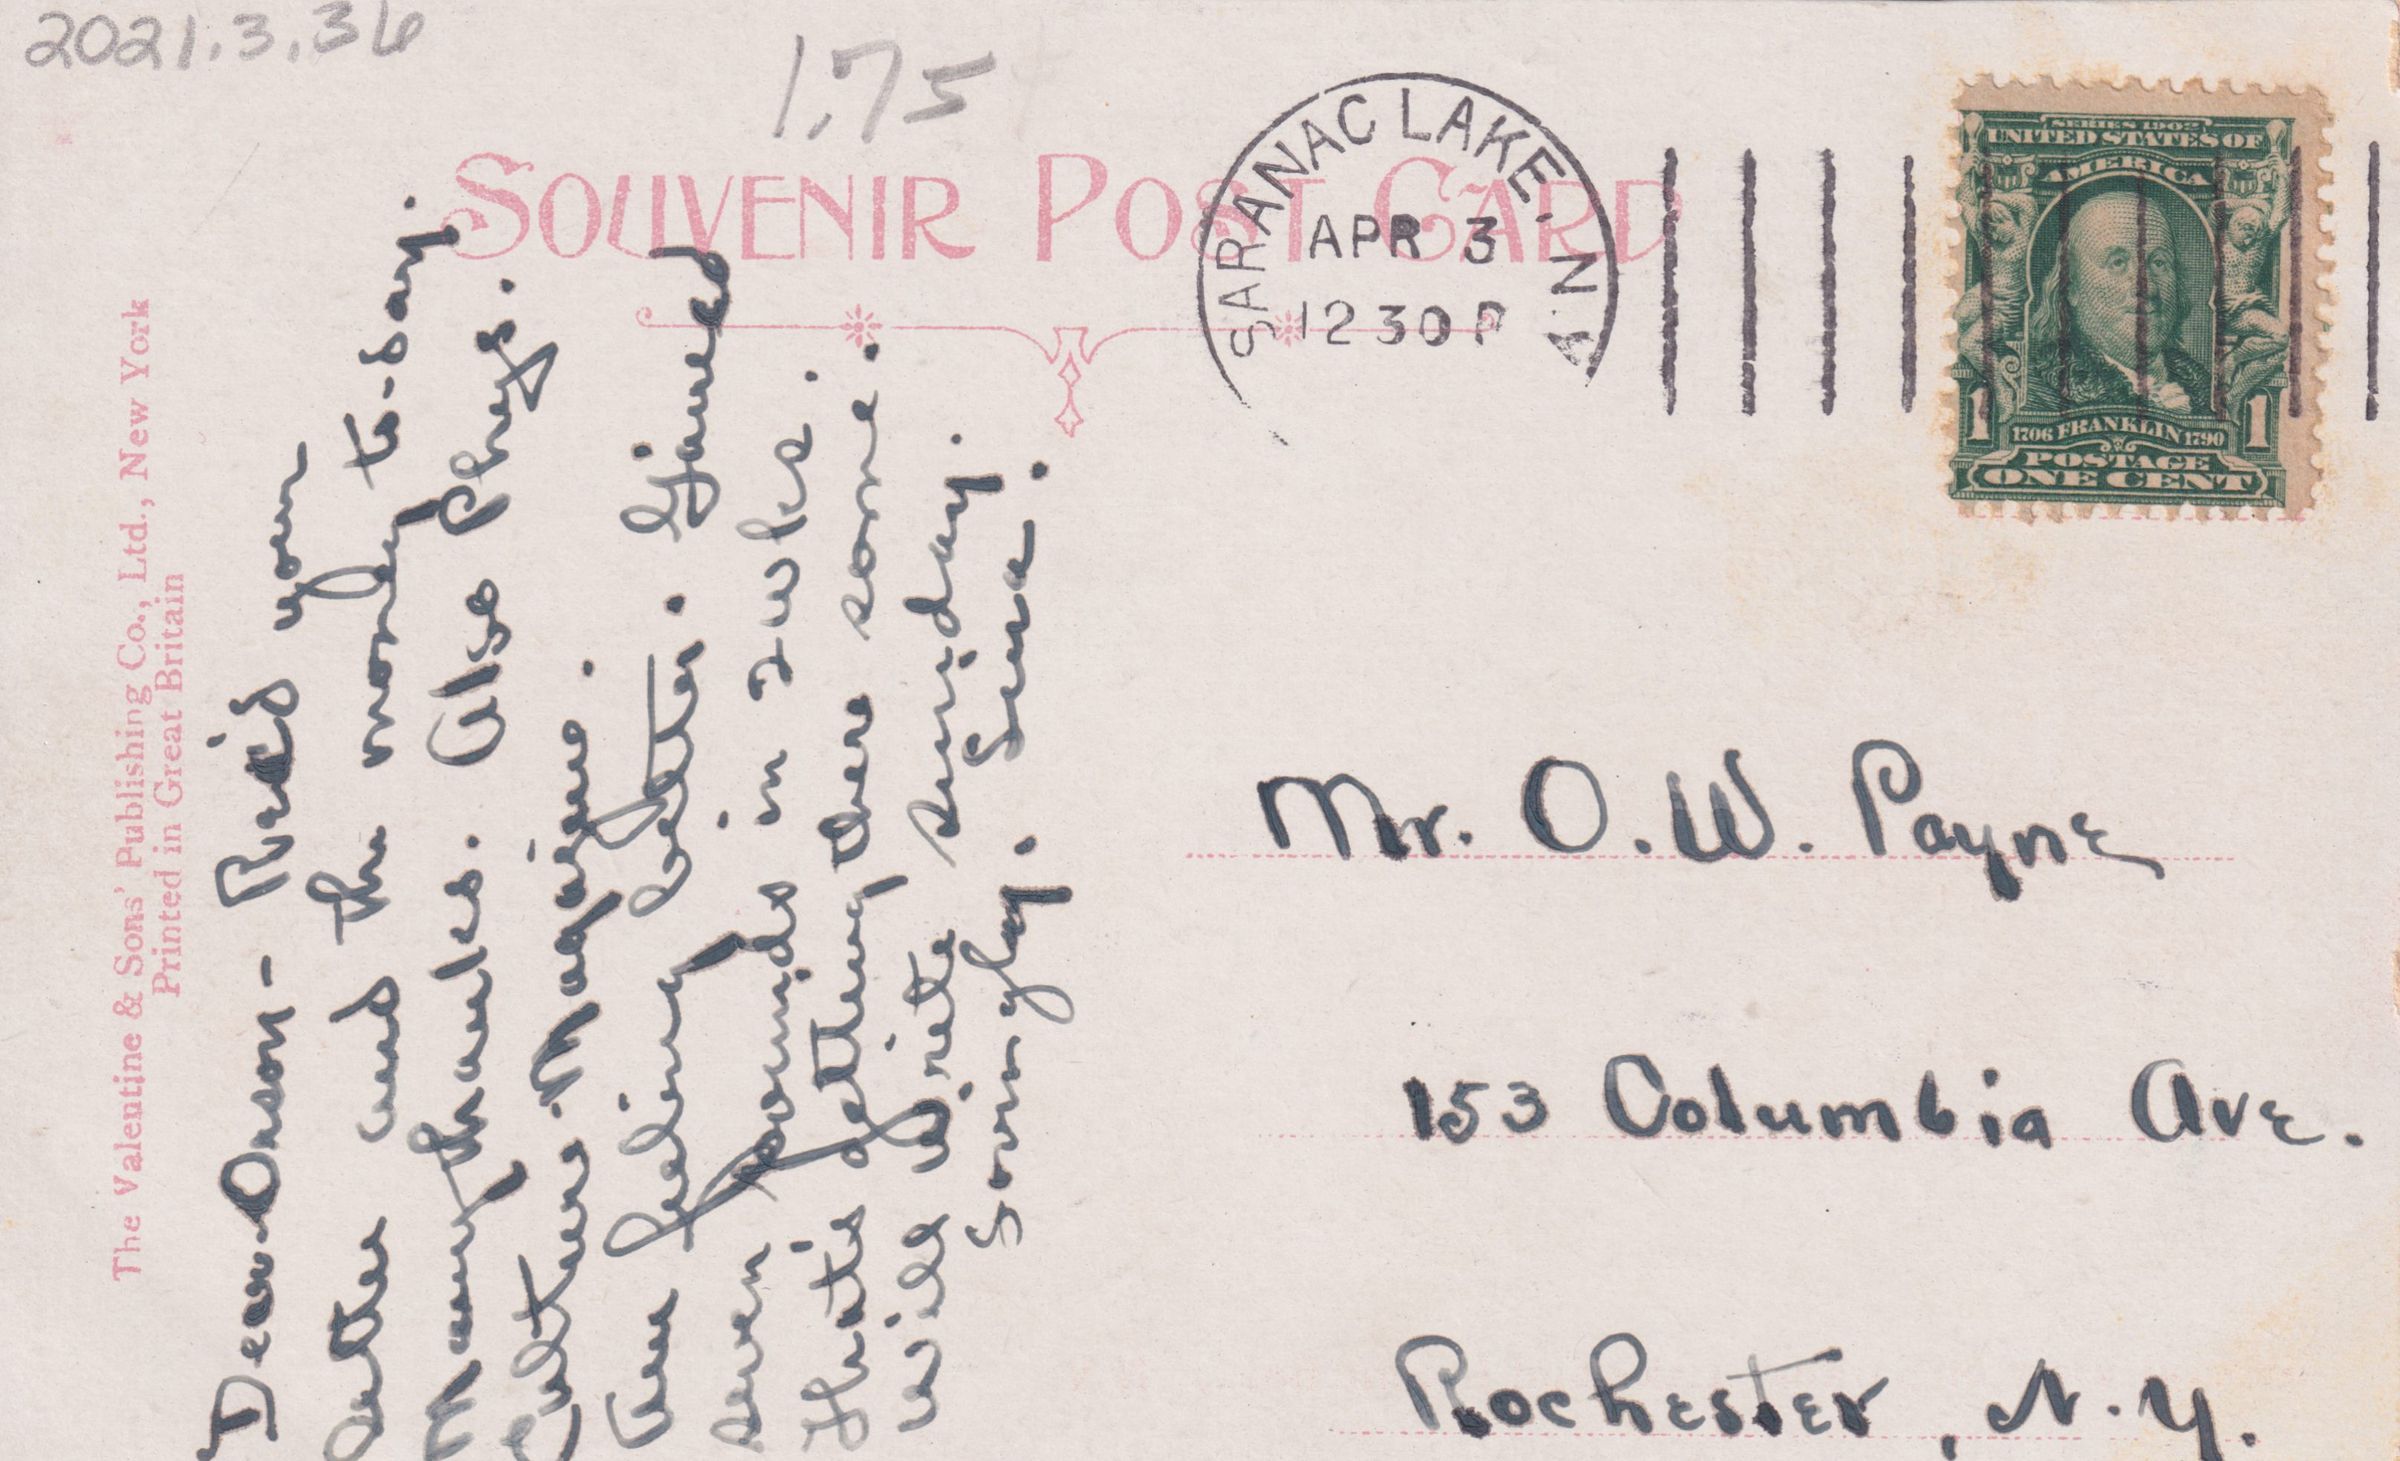 2021.3.36
1.75
SOUVENIR POST CARD
SARANAC LAKE, N.Y.
APR 3
12 30 P
SERIES 1902
UNITED STATES OF
AMERICA
1 1706 FRANKLIN 1790 1
POSTAGE
ONE CENT
The Valentine & Sons' Publishing Co., Ltd., New York
Printed in Great Britain
Dear Orson - Rec'd your
letter and the money to-day.
Many thanks. Also Phys.
Culture Magazine.
Am feeling better. Gained
seven pounds in 2 wks.
That's getting there some.
Will write sunday.
Lovingly.
Mr. O. W. Payne
153 Columbia Ave.
Rochester, N.Y.